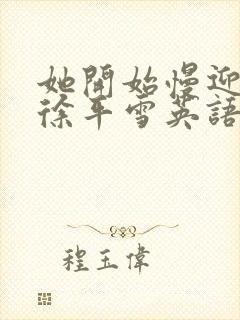 她開始慢迎
徐平雪英語
程玉偉